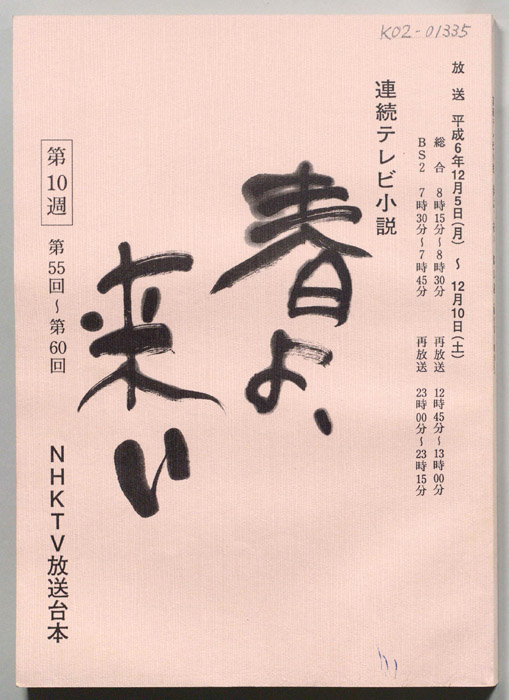 K02-01335
放送 平成6年12月5日(月)~12月10日(土)
総合 8時15分~8時30分 再放送 12時45分~13時00分
BS2 7時30分~7時45分 再放送 23時00分~23時15分
連続テレビ小説
春よ、
来い
第10週
第55回~第60回
NHKTV放送台本